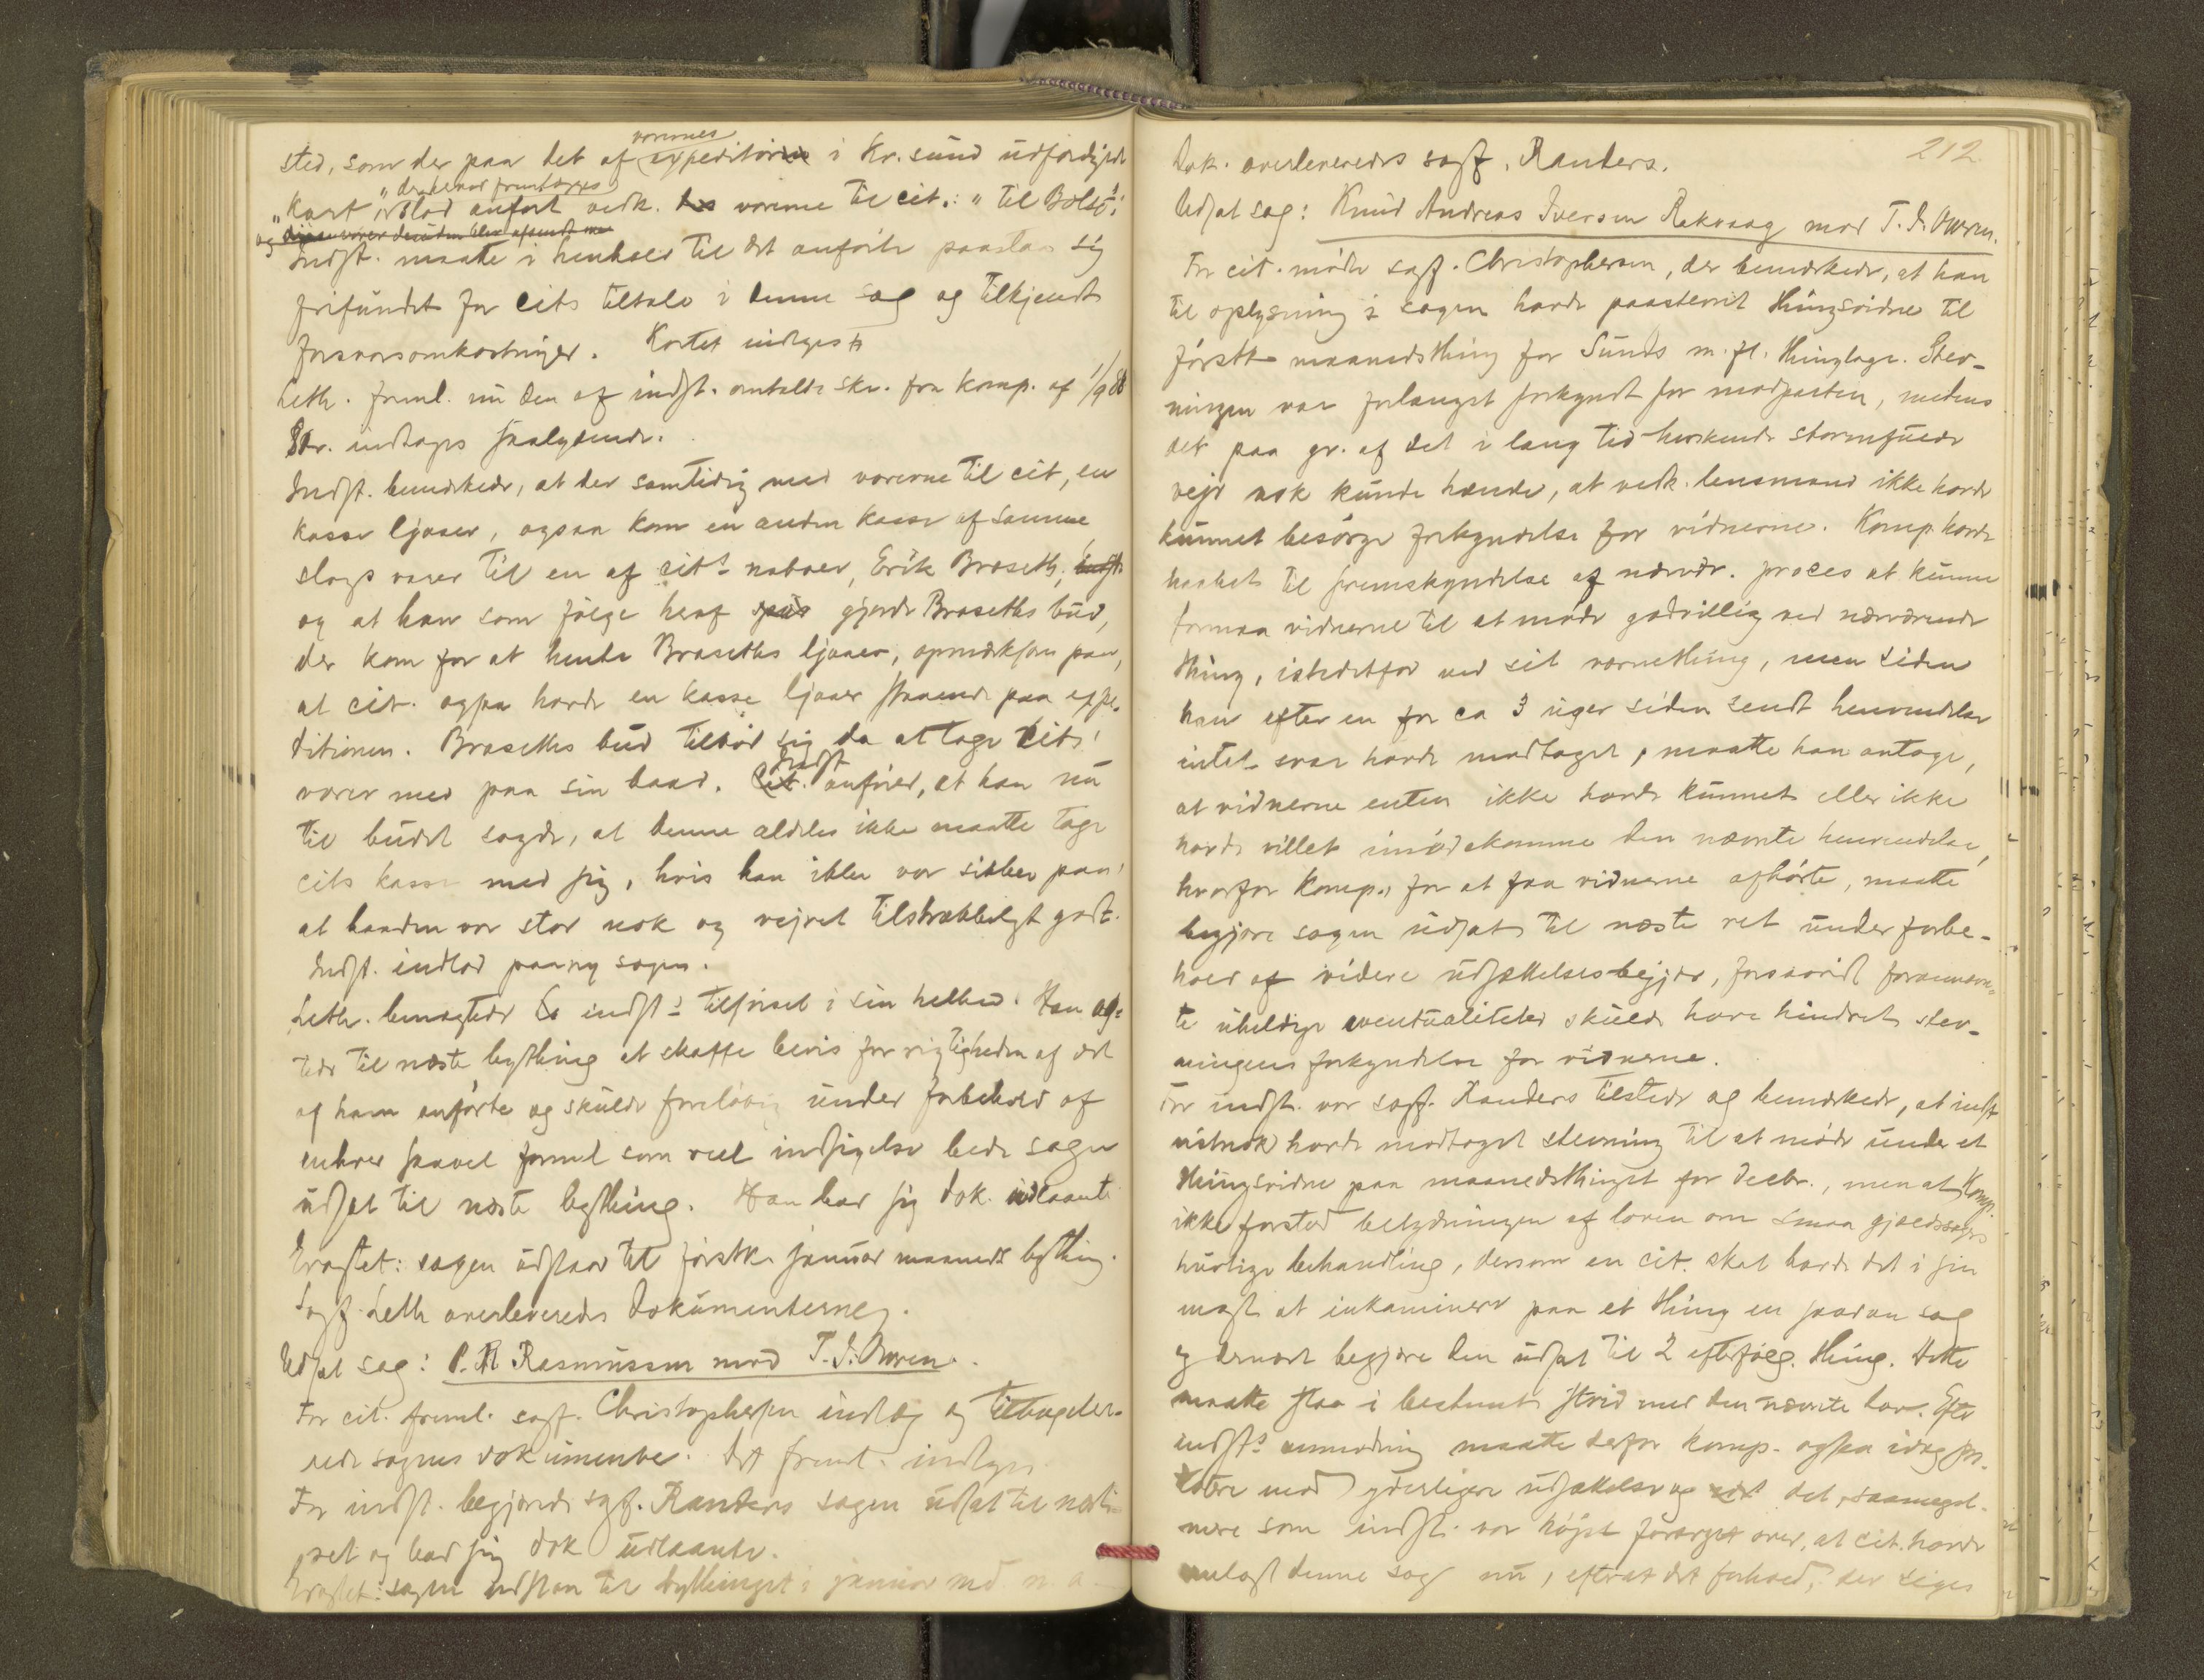 varernes
sted, som der paa det af expeditören i Kr.sund udfærdigede
"Kart, der herved fremlægges
Kort" blot anfört vedk. varerne til cit.: "til Bolsö";
og disse varer desuden blev afsendt med
Indst. maatte i henhold til det anförte paastaa sig
frifundet for cits tiltale i denne sag og tilkjendt
forsvarsomkostninger. Kortet indtages
Leth. freml. nu den af indst. omtalte skr. fra komp. af 1/9 88
Skr. indtages saalydende.
Indst. bemærkede, at der samtidig med varerne til cit, en
kasse ljaaer, ogsaa kom en anden kasse af samme
slags varer til en af cits naboer, Erik Braseth,
og at han som fölge heraf gjorde Braseths bud,
der kom for at hente Braseths ljaaer, opmærksom paa,
at cit. ogsaa havde en kasse ljaaer staaende paa expe-
ditionen. Braseths bud tilböd sig da at tage cits
varer med paa sin baad. Indst. anförer, at han nu
til budet sagde, at denne aldeles ikke maatte tage
cits kasse med sig, hvis han ikke var sikker paa,
at baaden var stor nok og veiret tilstrækkeligt godt.
Indst. indlod paany sagen.
Leth. benægtede indsts tilförsel i sin helhed. Han ag-
tede til næste bything at skaffe bevis for rigtigheden af det
af ham anförte og skulde foreløbig under forbehold af
enhver saavel formel som reel indsigelse bede sagen
udsat til næste bything. Han bad sig dok. udlaante
Eragtet: sagen udstaar til förstk. januar maaneds bything.
Sagf. Leth overleveredes dokumenterne.
Udsat sag: P. R. Rasmussen mod T. I. Owren.
For cit. freml. sagf. Christophersen indlæg og tilbagelev-
rede sagens dokumenter. Det freml. indtages
For indst. begjærede sagf. Randers sagen udsat til næste
ret og bad sig dok udlaante.
Eragtet: sagen udstaar til bythinget i januar md. n. a.
212
Dok. overleveredes sagf. Randers.
Udsat sag: Knud Andreas Iversen Rakvaag mod T. I. Owren.
For cit. mödte sagf. Christophersen, der bemærkede, at han
til oplysning i sagen havde paastevnt thingsvidne til
förstk. maanedsthing for Sunds m. fl. thinglage. Stev-
ningen var forlængst forkyndt for modparten, medens
det paa gr. af det i lang tid herskende stormfulde
vejr nok kunde hænde, at vedk. lensmand ikke havde
kunnet besörge forkyndelse for vidnerne. Komp. havde
haabet til fremskyndelse af nærvær. proces at kunne
formaa vidnerne til at möde godvillig ved nærværende
thing, istedetfor ved sit værnething, men siden
han efter en for ca 3 uger siden sendt henvendelse
intet svar havde modtaget, maatte han antage,
at vidnerne enten ikke havde kunnet eller ikke
havde villet imödekomme den nævnte henvendelse,
hvorfor komp., for at faa vidnerne afhörte, maatte
begjære sagen udsat til næste ret under forbe-
hold af videre udsættelsesbegjær, forsaavidt forannævn-
te uheldige eventualiteter skulde have hindret stev-
ningens forkyndelse for vidnerne.
For indst. var sagf. Randers tilstede og bemærkede, at indst
vistnok havde modtaget stevning til at möde under et
thingsvidne paa maanedsthinget for decbr., men at Komp.
ikke forstod betydningen af loven om smaa gjældssagers
hurtige behandling, dersom en cit. skal have det i sin
magt at inkaminere paa et thing en saadan sag
og dernæst begjære den udsat til 2 efterfölg. thing. Dette
maatte staa i bestemt strid med den nævnte lov. Efter
indsts anmodning maatte derfor komp. ogsaa idag pro-
testere mod yderligere udsættelse og det saameget-
mere som indst. var höjst forarget over, at cit. havde
anlagt denne sag nu, efterat det forhold, der siges